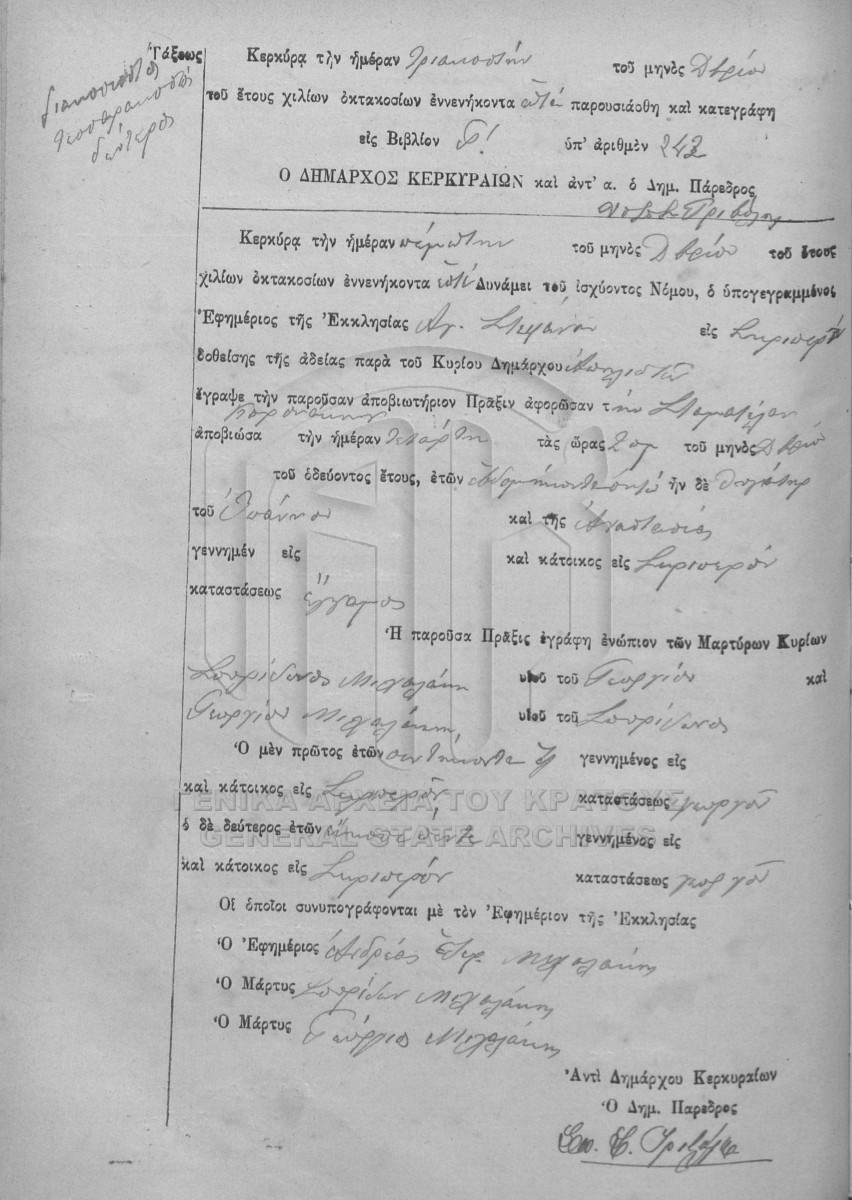 Τάξεως
διακοσιοστὴ
τεσσαρακοστὴ
δεύτερα
Κερκύρα τὴν ἡμέραν τριακοστὴν τοῦ μηνὸς Δβρίου
τοῦ ἔτους χιλίων ὀκτακοσίων ἐννενήκοντα ἑπτὰ παρουσιάσθη καὶ κατεγράφη
εἰς Βιβλίον Γ! ὑπ' ἀριθμὸν 242
Ο ΔΗΜΑΡΧΟΣ ΚΕΡΚΥΡΑΙΩΝ καὶ ἀντ' α. ὁ Δημ. Πάρεδρος
Κερκύρα τὴν ἡμέραν πέμπτην τοῦ μηνὸς Δβρίου τοῦ ἔτους
χιλίων ὀκτακοσίων ἐννενήκοντα ἑπτὰ Δυνάμει τοῦ ἰσχύοντος Νόμου, ὁ ὑπογεγραμμένος
Ἐφημέριος τῆς Ἐκκλησίας Αγ. Στεφάνου εἰς Σκριπερὸν
δοθείσης τῆς ἀδείας παρὰ τοῦ Κυρίου Δημάρχου
ἔγραψε τὴν παροῦσαν ἀποβιωτήριον Πρᾶξιν ἀφορῶσαν τὴν Σταματέλαν
ἀποβιώσα τὴν ἡμέραν τετάρτη τὰς ὥρας 2 μμ τοῦ μηνὸς Δβρίου
τοῦ ὁδεύοντος ἔτους, ἐτῶν ἑβδομήκοντα ὀκτώ ἦν δὲ θυγάτηρ
τοῦ Ἰωάννου καὶ τῆς Ἀναστασίας
γεννημέν εἰς καὶ κάτοικος εἰς Σκριπερόν
καταστάσεως ἔγγαμος
Ἡ παροῦσα Πρᾶξις ἐγράφη ἐνώπιον τῶν Μαρτύρων Κυρίων
Σπυρίδωνος Μιχαλάκη υἱοῦ τοῦ Γεωργίου καὶ
Γεωργίου Μιχαλάκη, υἱοῦ τοῦ Σπυρίδωνος
Ὁ μὲν πρῶτος ἐτῶν πεντήκοντα γεννημένος εἰς
καὶ κάτοικος εἰς Σκριπερόν καταστάσεως γεωργοῦ
ὁ δὲ δεύτερος ἐτῶν εἴκοσι πέντε γεννημένος εἰς
καὶ κάτοικος εἰς Σκριπερόν καταστάσεως γεωργοῦ
Οἱ ὁποῖοι συνυπογράφονται μὲ τὸν Ἐφημέριον τῆς Ἐκκλησίας
Ὁ Ἐφημέριος Ἀνδρέας Μιχαλάκης
Ὁ Μάρτυς Σπυρίδων Μιχαλάκης
Ὁ Μάρτυς Γεώργιος Μιχαλάκης
Ἀντὶ Δημάρχου Κερκυραίων
Ὁ Δημ. Παρεδρος
ΓΕΝΙΚΑ ΑΡΧΕΙΑ ΤΟΥ ΚΡΑΤΟΥΣ
GENERAL STATE ARCHIVES